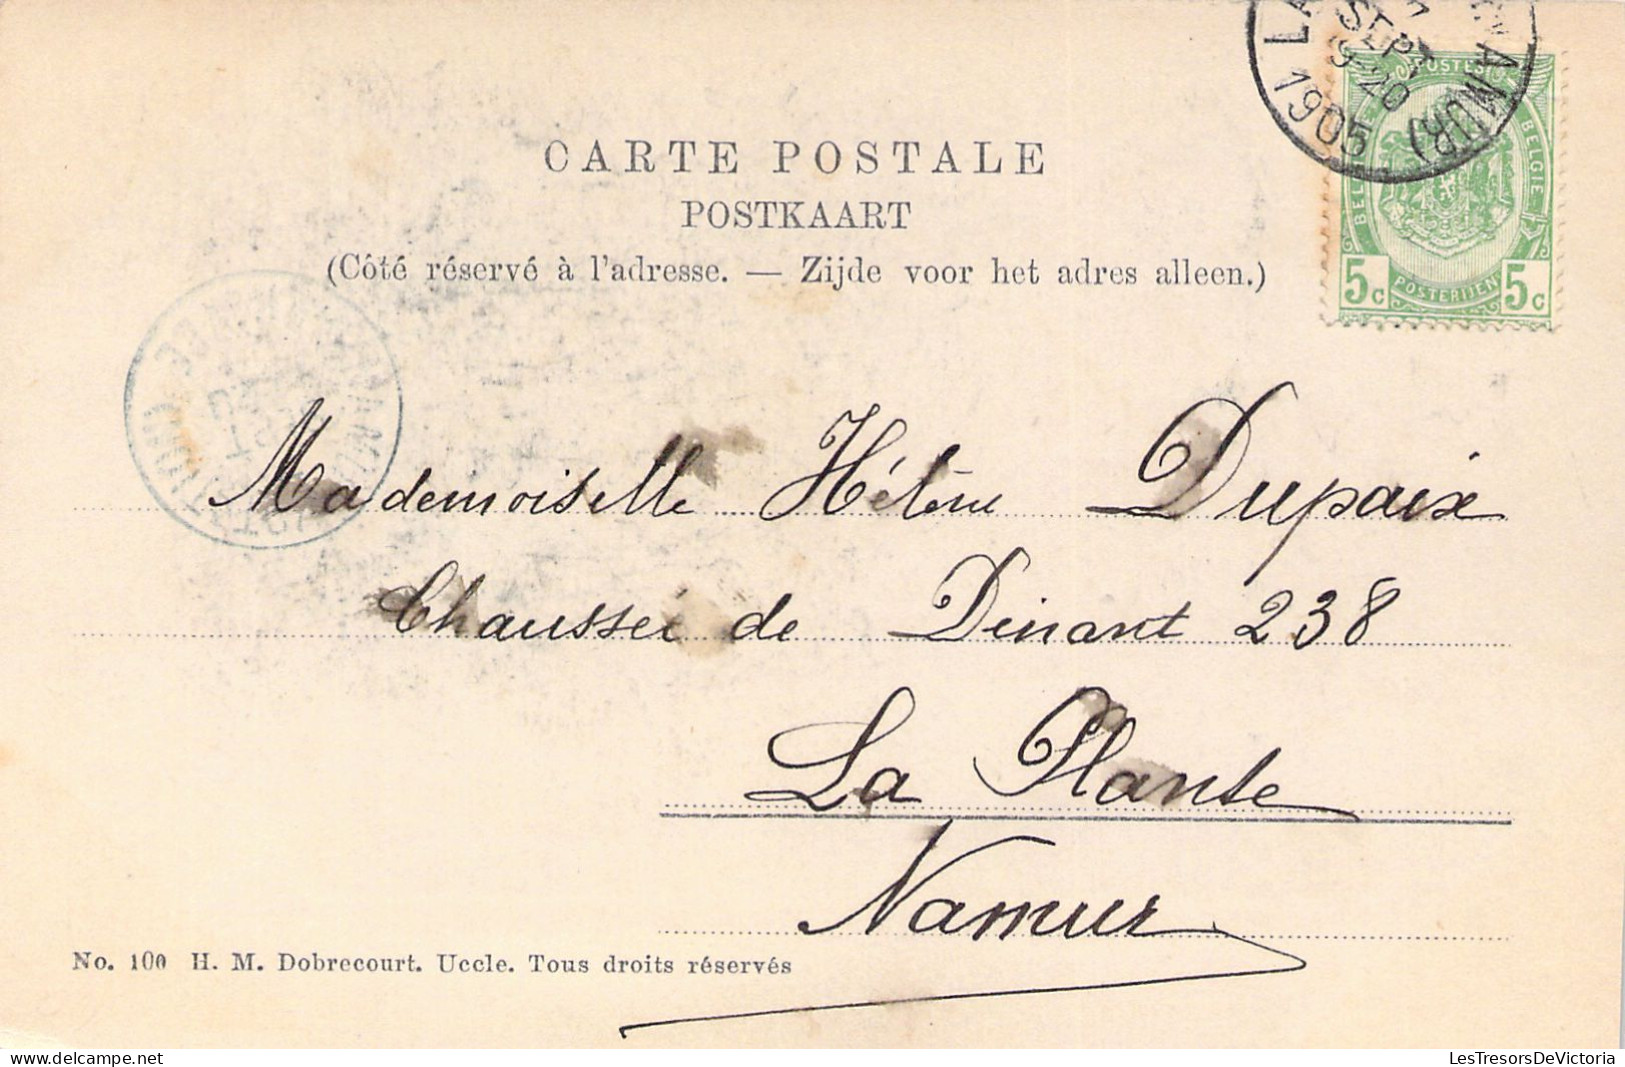 1905
POSTES
BELGIE
5c POSTERIJEN 5c
CARTE POSTALE
POSTKAART
(Côté réservé à l'adresse. — Zijde voor het adres alleen.)
Mademoiselle Hélène Dupaix
Chaussée de Dinant 238
La Plante
Namur
No. 100 H. M. Dobrecourt. Uccle. Tous droits réservés
LesTresorsDeVictoria